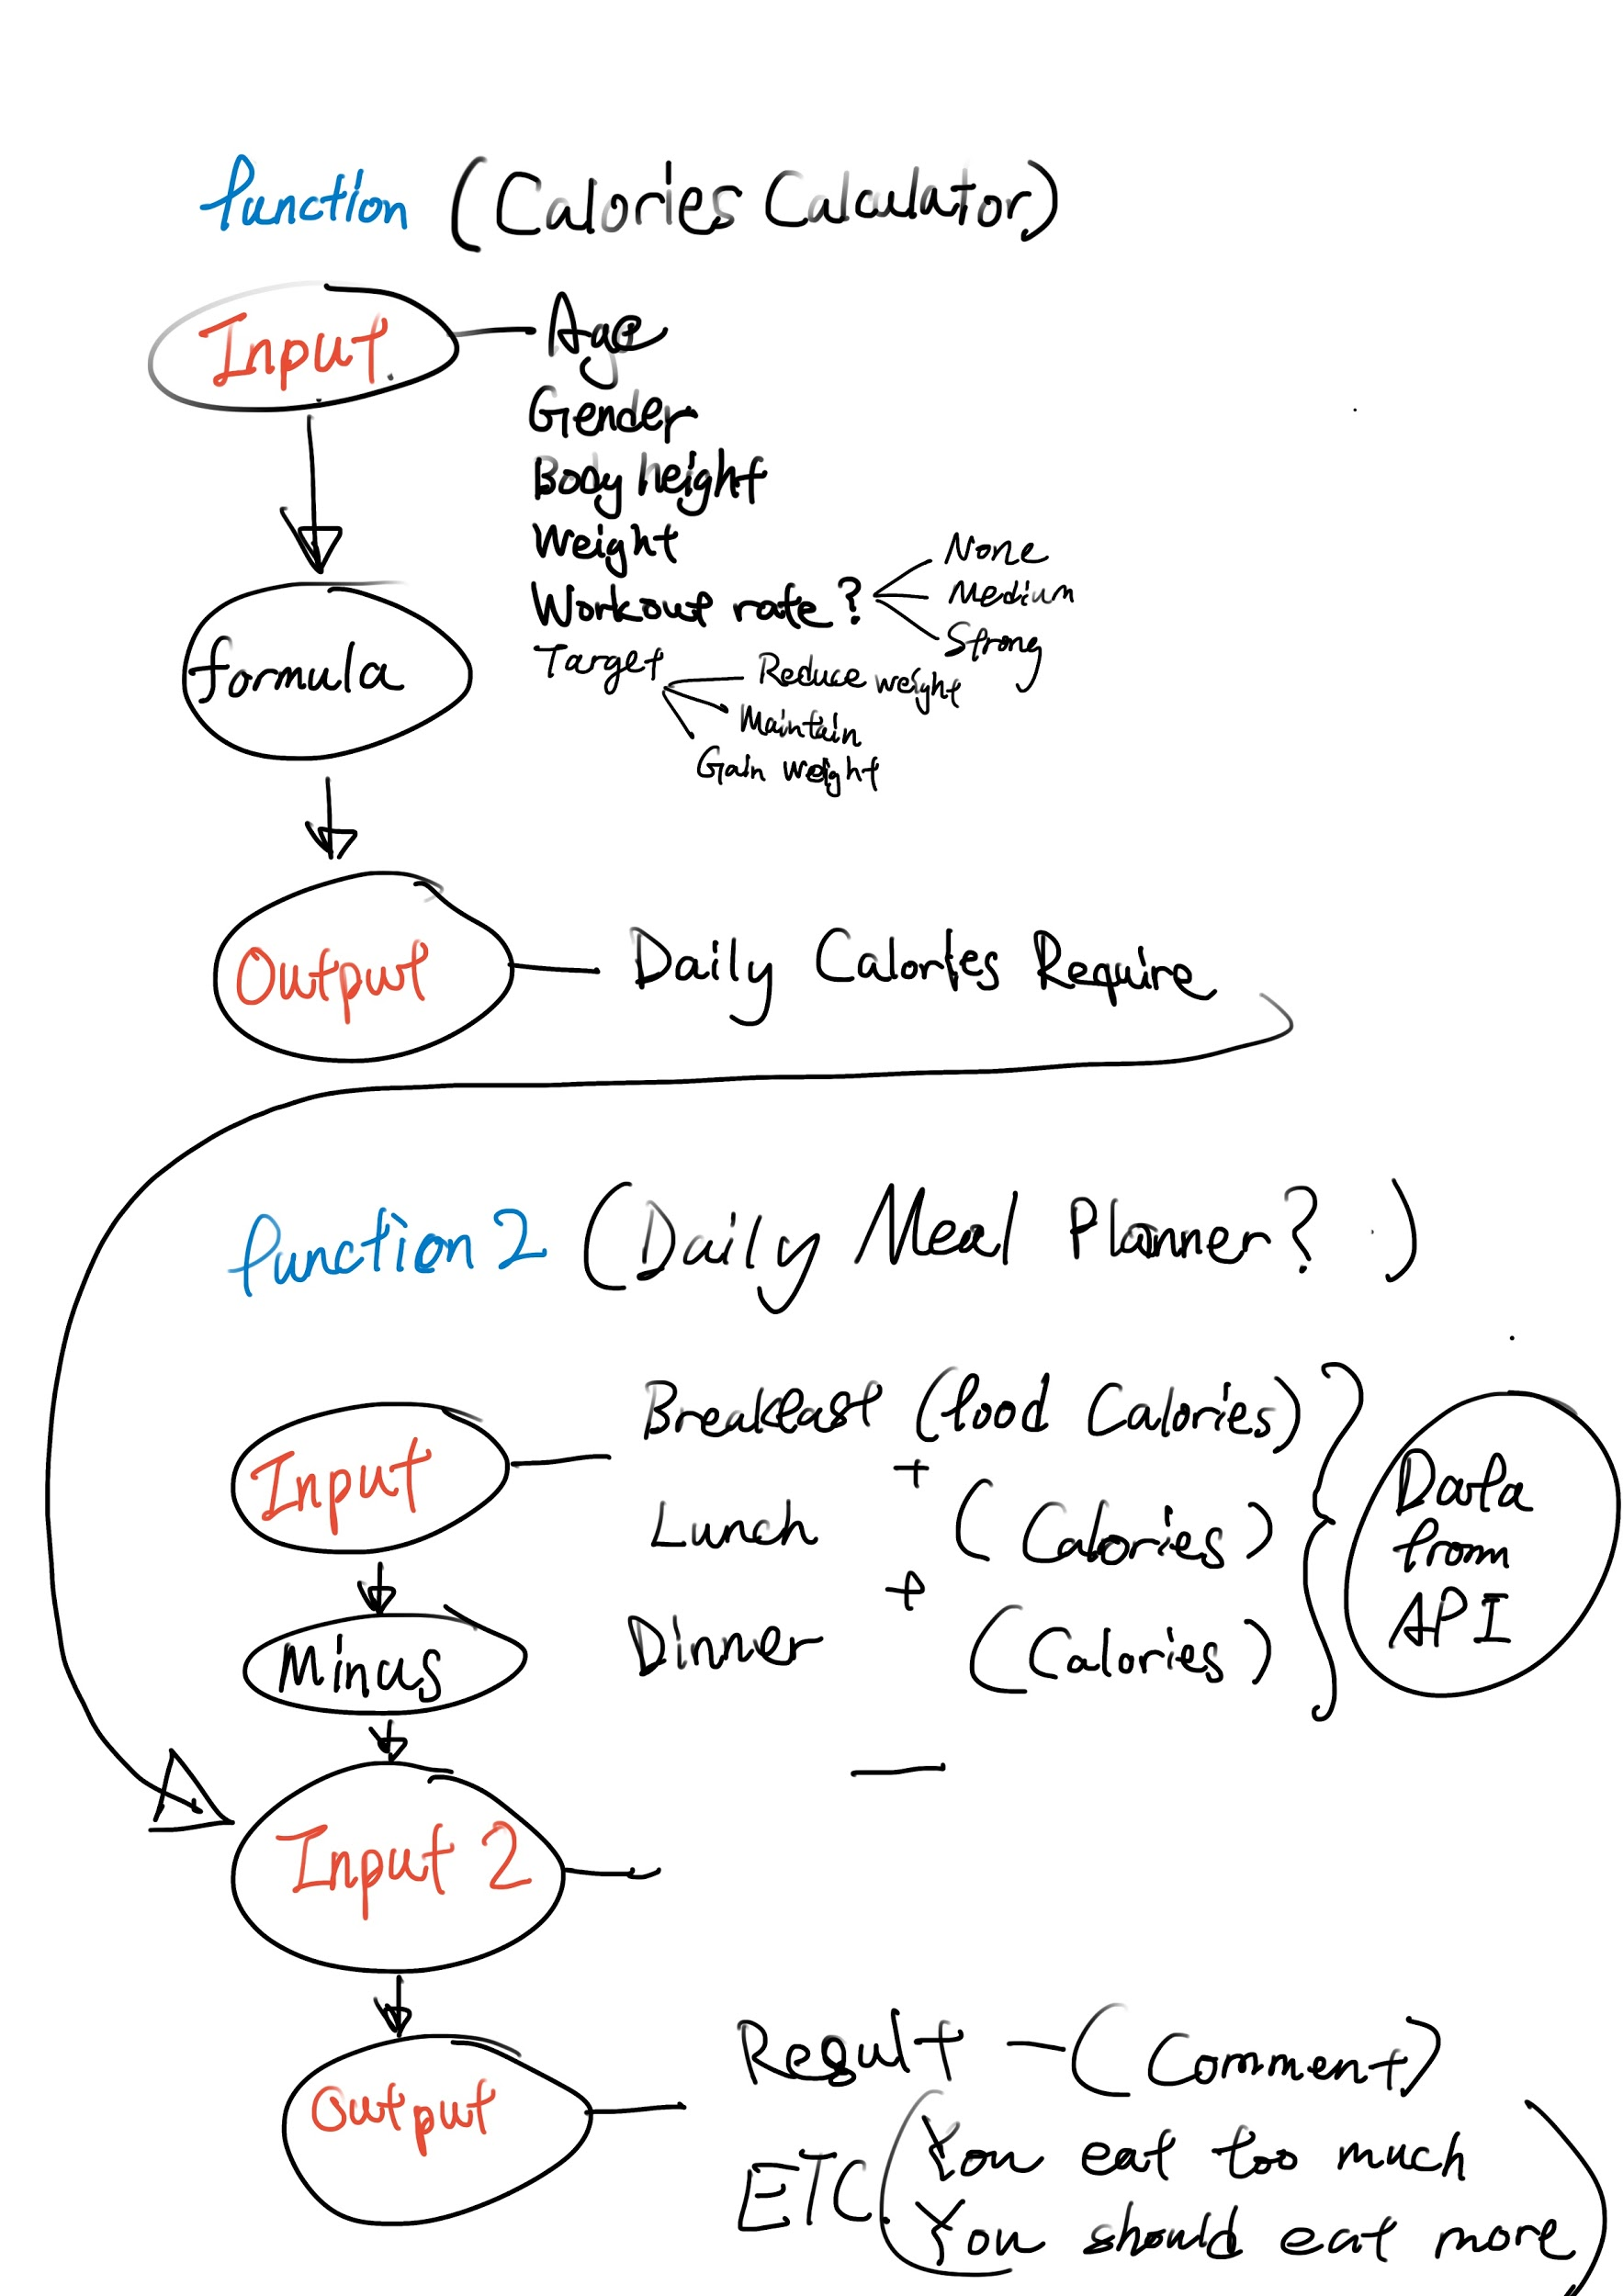 function (Calories Calculator)
Input.
Age
Gender
Body height
Weight
Workout rate?
None
Medium
Strong
Target
Reduce weight
Maintain
Gain weight
formula
Output
Daily Calories Require
function 2 (Daily Meal Planner? )
Input
Breakfast (food Calories)
+
Lunch (Calories)
+
Dinner (Calories)
Data
from
API
Minus
—
Input 2
Output
Result - (Comment)
ETC. (You eat too much
You should eat more)